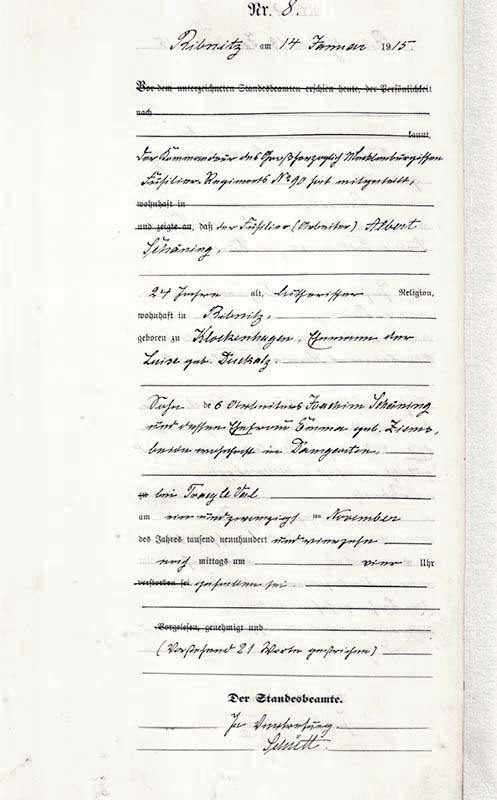 Nr. 8.
Ribnitz am 14 Januar 1915.
Vor dem unterzeichneten Standesbeamten erschien heute, der Persönlichkeit
nach
kannt,
der Kommandeur des Großherzoglich Mecklenburgischen
Füsilier-Regiments No 90 hat mitgeteilt,
wohnhaft in
und zeigte an, daß der Füsilier (Arbeiter) Albert
Schöning,
24 Jahre alt, lutherischer Religion,
wohnhaft in Ribnitz,
geboren zu Klockenhagen, Ehemann der
Luise geb.
Sohn des Arbeiters Joachim Schöning
und dessen Ehefrau Emma geb. Ziems,
beide wohnhaft in Damgarten,
zu bei
am ein und zwanzigsten November
des Jahres tausend neunhundert und vierzehn
nach mittags um vier Uhr
verstorben sei gefallen sei
Vorgelesen, genehmigt und
(Vorstehend 21 Worte gestrichen)
Der Standesbeamte.
In Vertretung
Schütt.